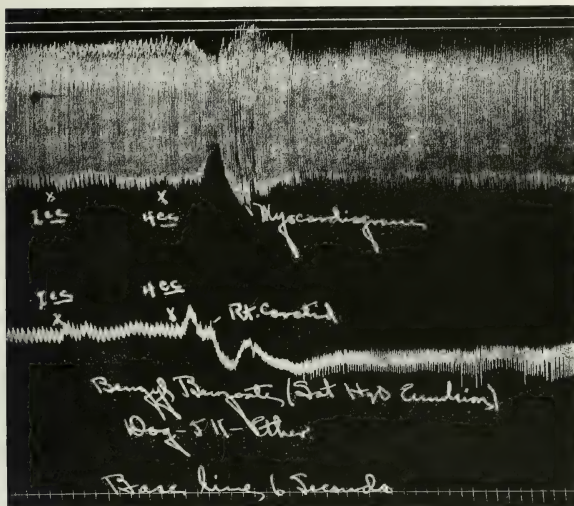 x x
1cc 4cc
Myocardiogram
1cc 4cc
x x
Rt. Carotid
Benzyl Benzoate, (Sat H2O Emulsion)
Dog - 5 K - Ether
Base line, 6 Seconds